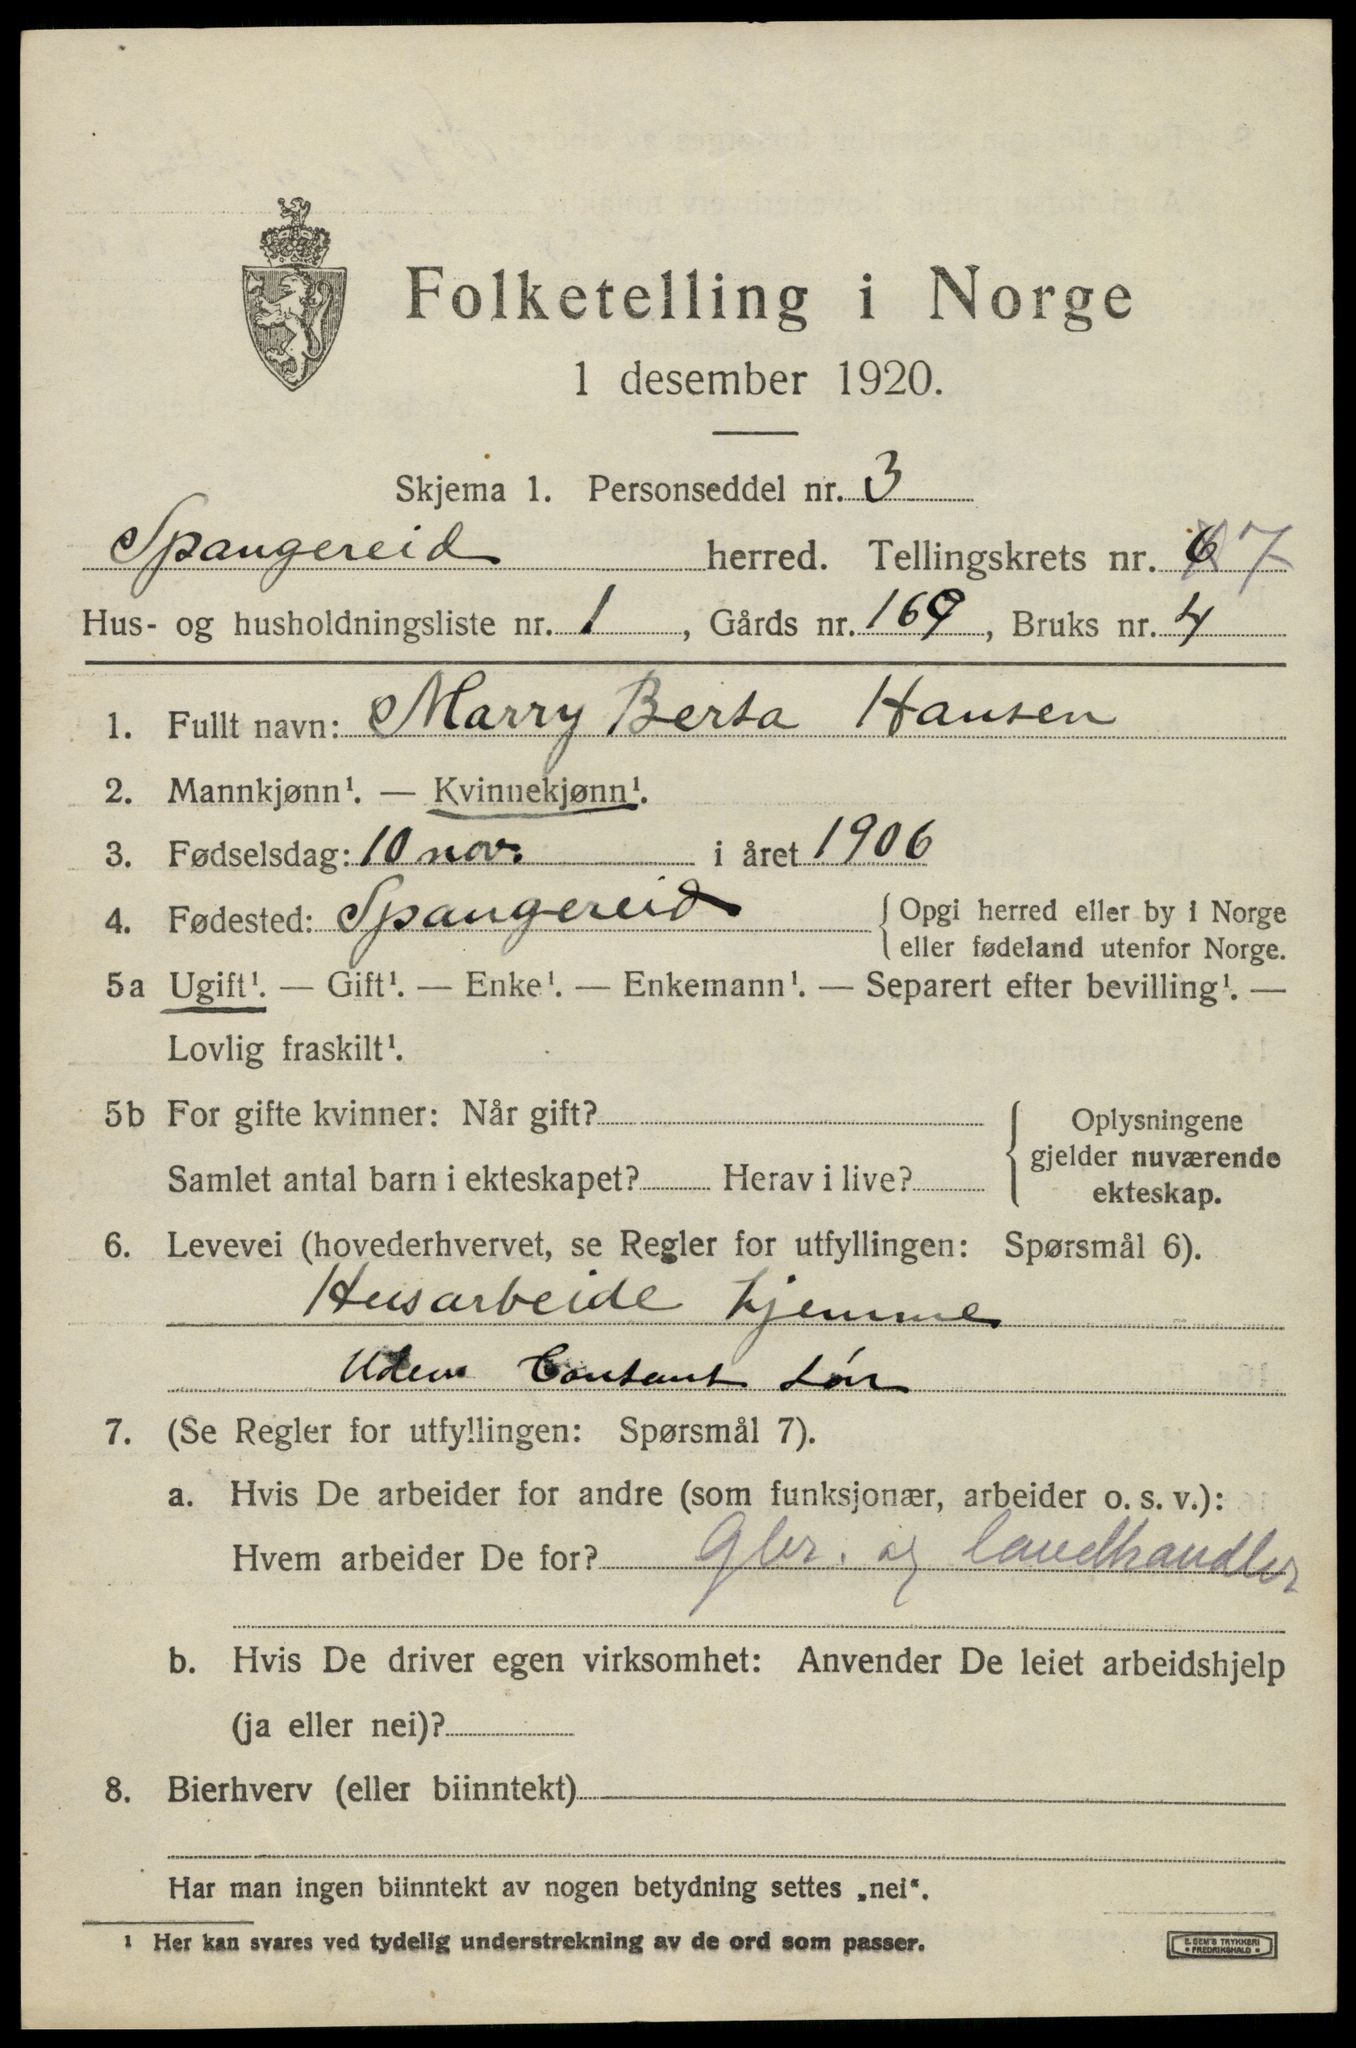 Folketelling i Norge
1 desember 1920.
Skjema 1. Personseddel nr. 3
Spangereid herred. Tellingskrets nr. 6 7
Hus- og husholdningsliste nr. 1, Gårds nr. 169, Bruks nr. 4
1. Fullt navn: Marry Berta Hansen
2. Mannkjønn¹. — Kvinnekjønn¹.
3. Fødselsdag: 10 nov. i året 1906
4. Fødested: Spangereid { Opgi herred eller by i Norge
eller fødeland utenfor Norge.
5a Ugift¹. — Gift¹. — Enke¹. — Enkemann¹. — Separert efter bevilling¹. —
Lovlig fraskilt¹.
5b For gifte kvinner: Når gift?
Samlet antal barn i ekteskapet? Herav i live?
{ Oplysningene
gjelder nuværende
ekteskap.
6. Levevei (hovederhvervet, se Regler for utfyllingen: Spørsmål 6).
Husarbeide hjemme
Uden Contant Løn
7. (Se Regler for utfyllingen: Spørsmål 7).
a. Hvis De arbeider for andre (som funksjonær, arbeider o. s. v.):
Hvem arbeider De for? Gbr. og landhandler
b. Hvis De driver egen virksomhet: Anvender De leiet arbeidshjelp
(ja eller nei)?
8. Bierhverv (eller biinntekt)
Har man ingen biinntekt av nogen betydning settes „nei“.
¹ Her kan svares ved tydelig understrekning av de ord som passer.
E. SEM'S TRYKKERI
FREDRIKSHALD